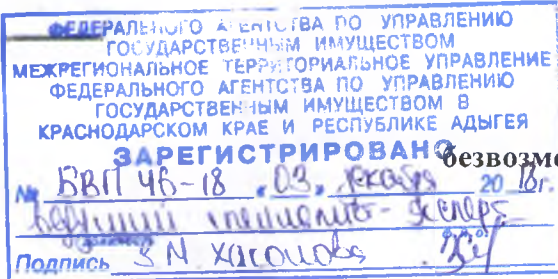 ФЕДЕРАЛЬНОГО АГЕНТСТВА ПО УПРАВЛЕНИЮ
ГОСУДАРСТВЕННЫМ ИМУЩЕСТВОМ
МЕЖРЕГИОНАЛЬНОЕ ТЕРРИТОРИАЛЬНОЕ УПРАВЛЕНИЕ
ФЕДЕРАЛЬНОГО АГЕНТСТВА ПО УПРАВЛЕНИЮ
ГОСУДАРСТВЕННЫМ ИМУЩЕСТВОМ В
КРАСНОДАРСКОМ КРАЕ И РЕСПУБЛИКЕ АДЫГЕЯ
ЗАРЕГИСТРИРОВАНО безвозме
№ БВП 46-18 „03„ декабря 2018г.
ведущий специалист-эксперт
Подпись З М